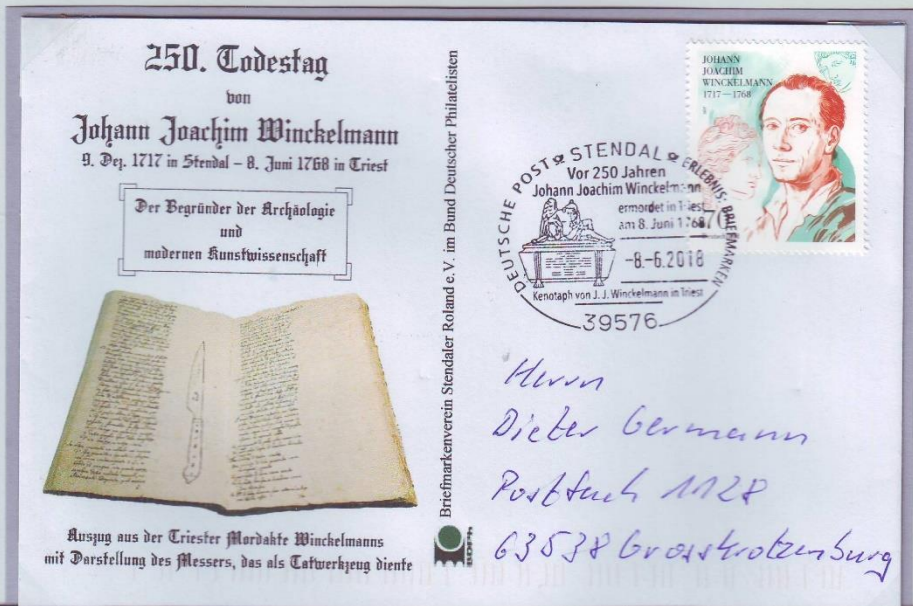 250. Todestag
von
Johann Joachim Winckelmann
9. Dez. 1717 in Stendal – 8. Juni 1768 in Triest
Der Begründer der Archäologie
und
modernen Kunstwissenschaft
Auszug aus der Triester Mordakte Winckelmanns
mit Darstellung des Messers, das als Tatwerkzeug diente
Briefmarkenverein Stendaler Roland e.V. im Bund Deutscher Philatelisten
BDPh
JOHANN
JOACHIM
WINCKELMANN
1717—1768
70
DEUTSCHE POST STENDAL ERLEBNIS: BRIEFMARKEN
Vor 250 Jahren
Johann Joachim Winckelmann
ermordet in Triest
am 8. Juni 1768
-8.-6.2018
Kenotaph von J. J. Winckelmann in Triest
39576
Herrn
Dieter Germann
Postfach 1128
63538 Grosskrotzenburg